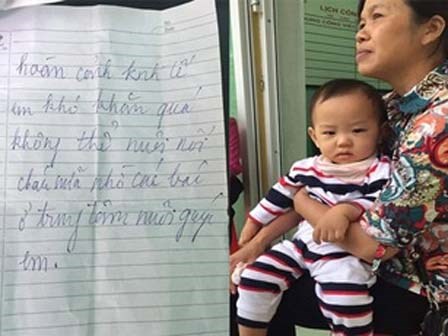 hoàn cảnh kinh tế
em khó khăn quá
không thể nuôi nổi
cháu nữa nhờ các bác
ở trung tâm nuôi giúp
em.
LỊCH CÔN